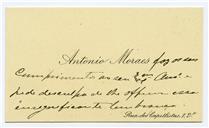 Antonio Moraes faz os seus
Cumprimentos ao seu Exmo Amº e
pede desculpa de lhe offerecer essa
insignificante lembrança.
Rua dos Capellistas, 1, Dº